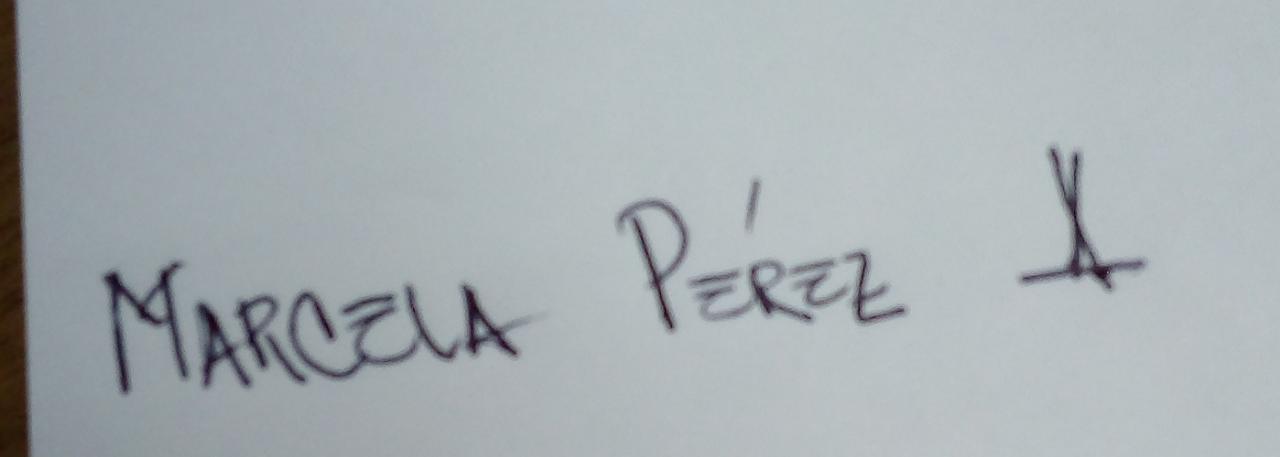 MARCELA PÉREZ